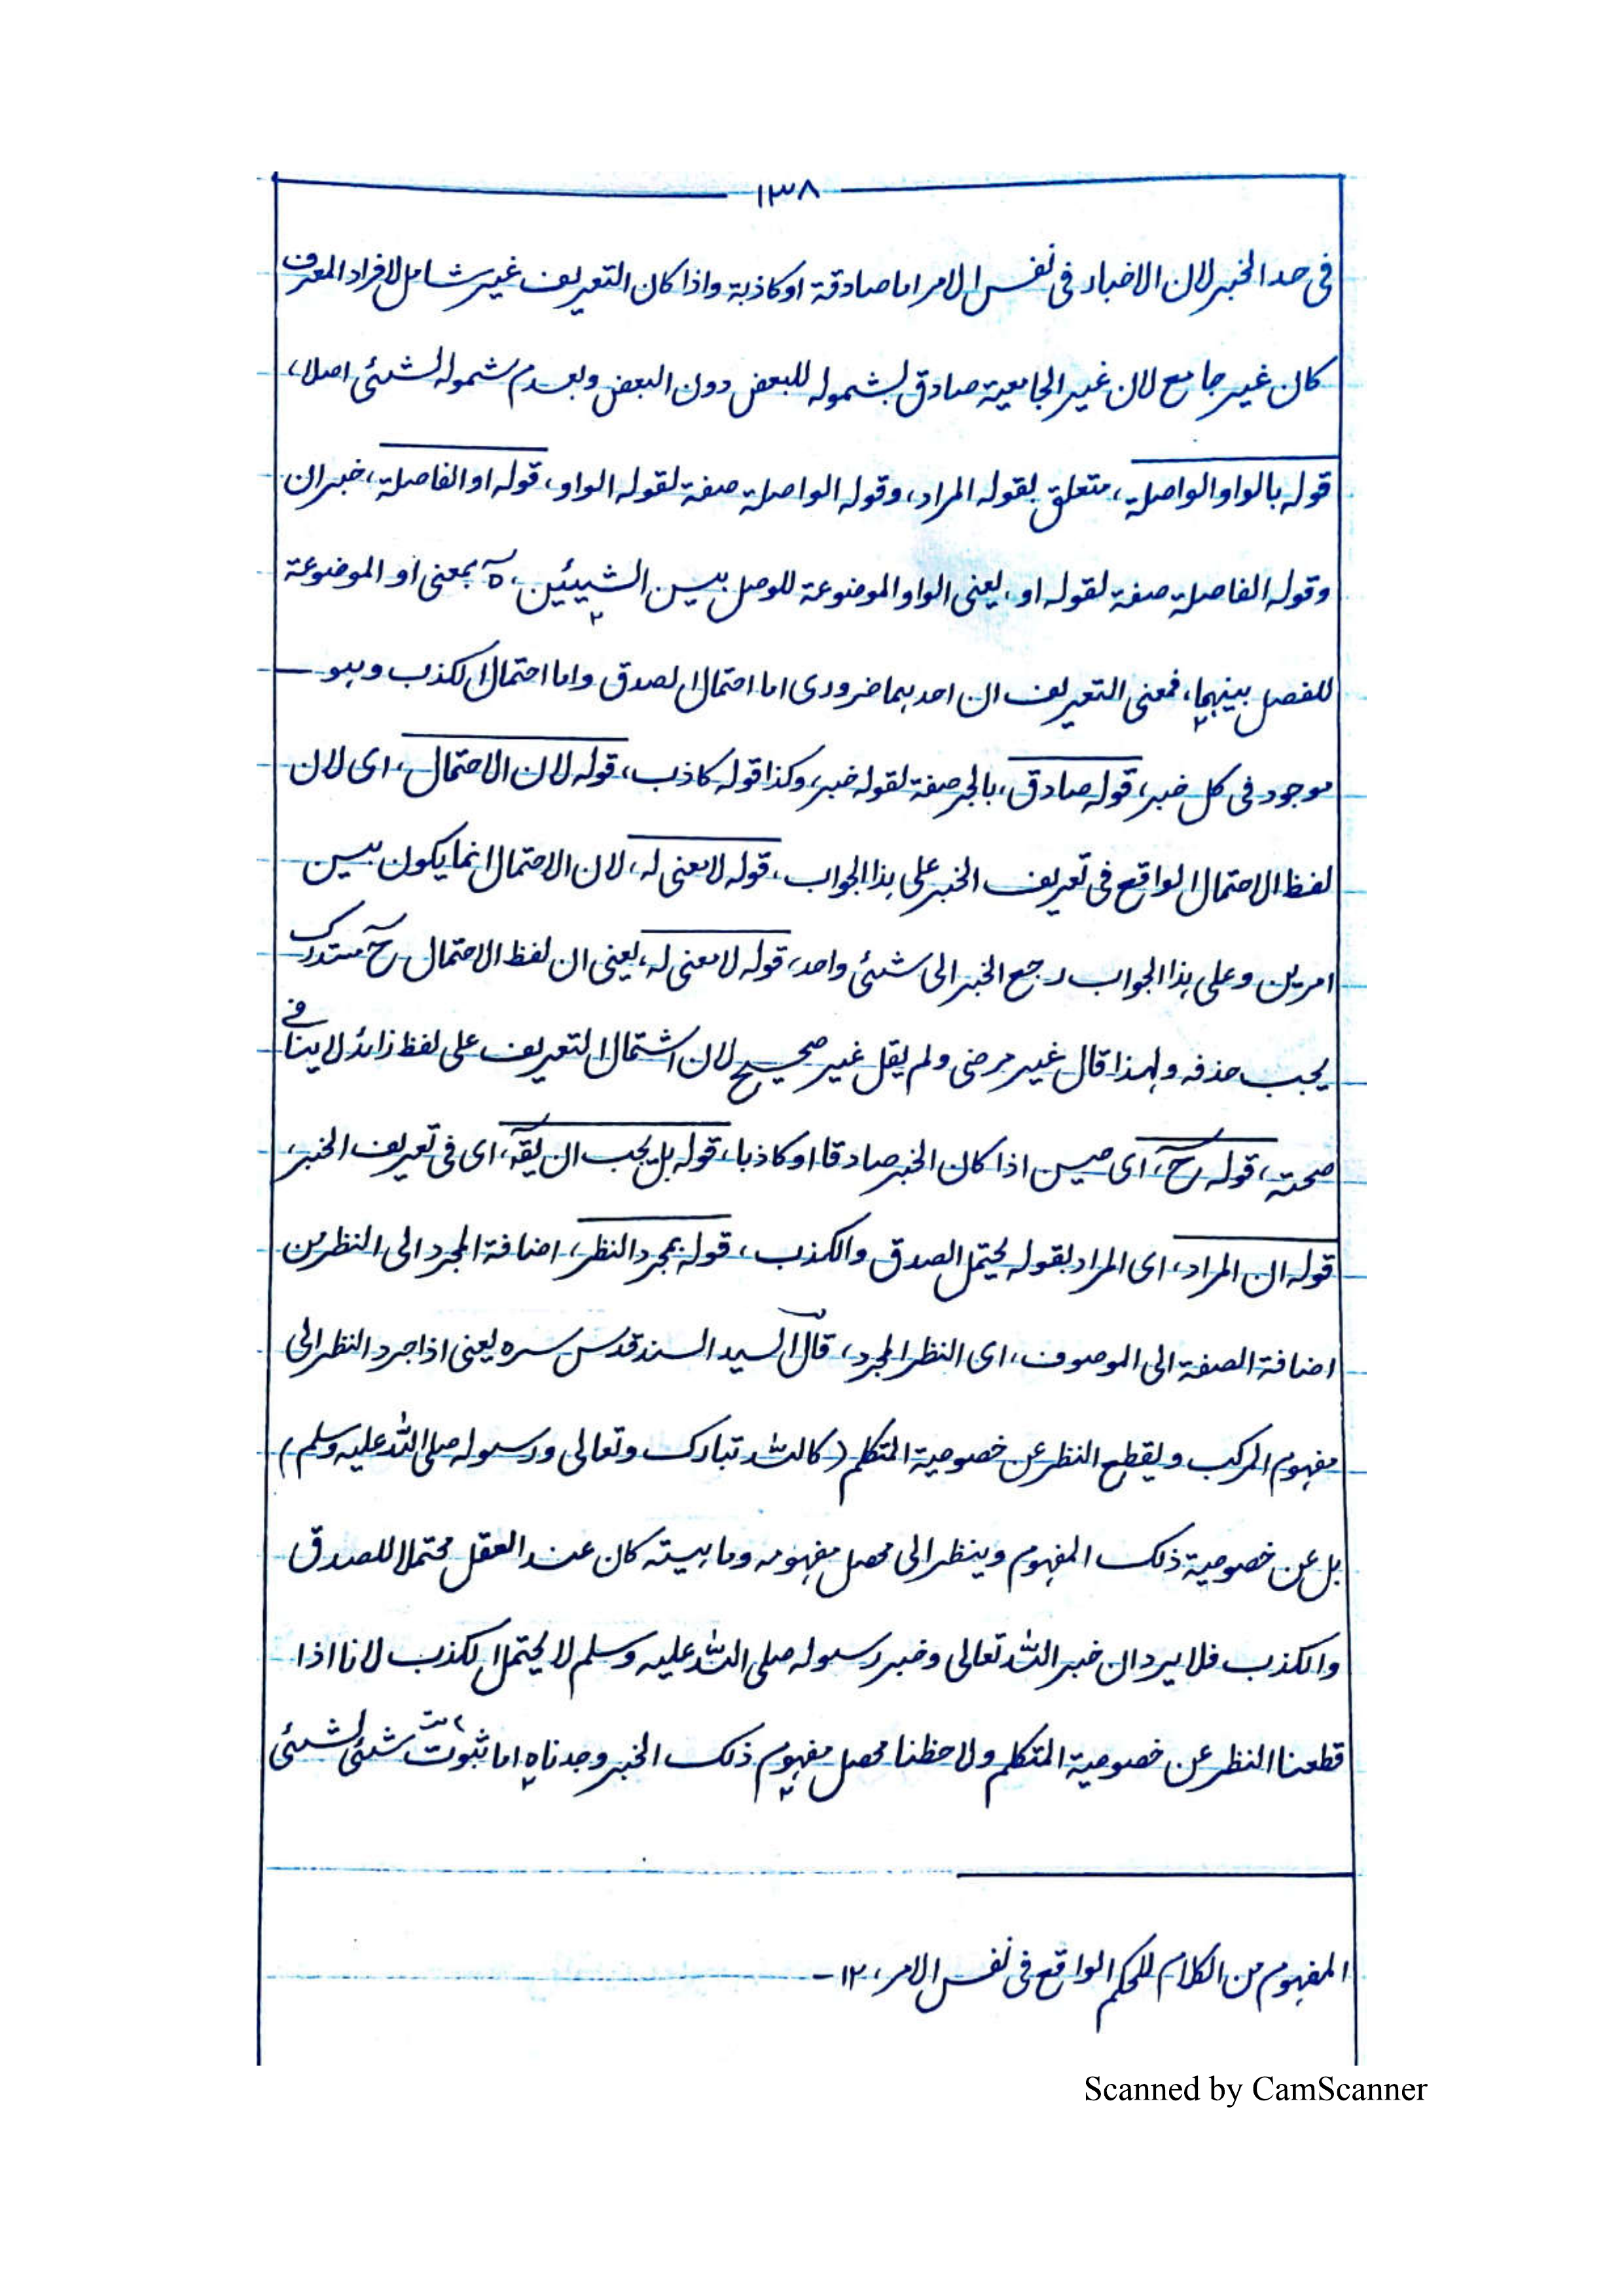 ١٣٨
فى حد الخبر لان الاخبار فى نفس الامر اما صادقة او كاذبة واذا كان التعريف غير شامل لافراد المعرف
كان غير جامع لان غير الجامعية صادق بشموله للبعض دون البعض وبعدم شموله لشئى اصلا،
قوله بالواو الواصلة، متعلق بقوله المراد، وقوله الواصلة صفة لقوله الواو، قوله او الفاصلة، خبر ان
وقوله الفاصلة صفة لقوله او، يعنى الواو الموضوعة للوصل بين الشيئين، بمعنى او الموضوعة
للفصل بينهما، فمعنى التعريف ان احدهما ضرورى اما احتمال الصدق واما احتمال الكذب وهو
موجود فى كل خبر، قوله صادق، بالجر صفة لقوله خبر، وكذا قوله كاذب، قوله لان الاحتمال، اى لان
لفظ الاحتمال الواقع فى تعريف الخبر على هذا الجواب، قوله لا معنى له، لان الاحتمال انما يكون بين
امرين وعلى هذا الجواب رجع الخبر الى شئى واحد، قوله لا معنى له، يعنى ان لفظ الاحتمال ح مستدرك
يجب حذفه ولهذا قال غير مرضى ولم يقل غير صحيح لان اشتمال التعريف على لفظ زائد لا ينافى
صحته، قوله ح، اى حين اذا كان الخبر صادقا او كاذبا، قوله بل يجب ان يقه، اى فى تعريف الخبر،
قوله ان المراد، اى المراد بقوله يحتمل الصدق والكذب، قوله بمجرد النظر، اضافة المجرد الى النظر من
اضافة الصفة الى الموصوف، اى النظر المجرد، قال السيد السند قدس سره يعنى اذا جرد النظر الى
مفهوم المركب ويقطع النظر عن خصوصية المتكلم (كالله تبارك وتعالى ورسوله صلى الله عليه وسلم)
بل عن خصوصية ذلك المفهوم وينظر الى محصل مفهومه وماهيته كان عند العقل محتملا للصدق
والكذب فلا يرد ان خبر الله تعالى وخبر رسوله صلى الله عليه وسلم لا يحتمل الكذب لانا اذا
قطعنا النظر عن خصوصية المتكلم ولاحظنا محصل مفهوم ذلك الخبر وجدناه اما ثبوت شئى لشئى
المفهوم من الكلام للحكم الواقع فى نفس الامر، ١٢ـ
Scanned by CamScanner